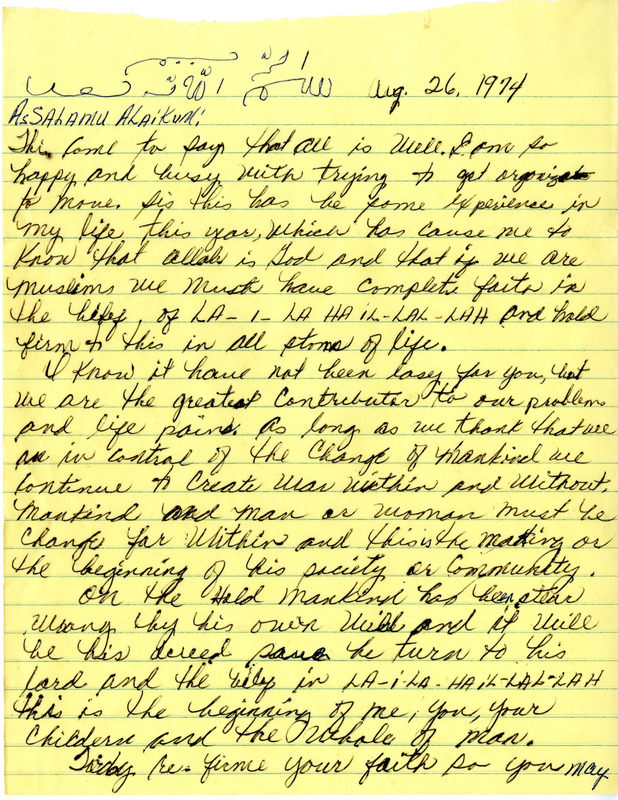 بسم الله Aug. 26, 1974
AsSALAMU ALAiKUM:
This come to say that all is well. I am so
happy and busy with trying to get organizat
to move. Sis this has be some experience in
my life this year, which has cause me to
know that allah is God and that if we are
muslims we must have complete faith in
the of LA-I-LA HAiL-LAL-LAH and hold
firm to this in all of life.
I know it have not been easy for you, but
we are the greatest contributor to our problems
and life pains. As long as we thank that we
are in control of the change of mankind we
continue to create war within and without.
Mankind and man or woman must be
change far within and this is the making or
the beginning of his society or community.
On the Hold mankind has been stear
wrong by his own will and it will
be his he turn to his
Lord and the in LA-iLA-HAiL-LAL-LAH
this is the beginning of me, you, your
childern and the whole of man.
re-firme your faith so you may